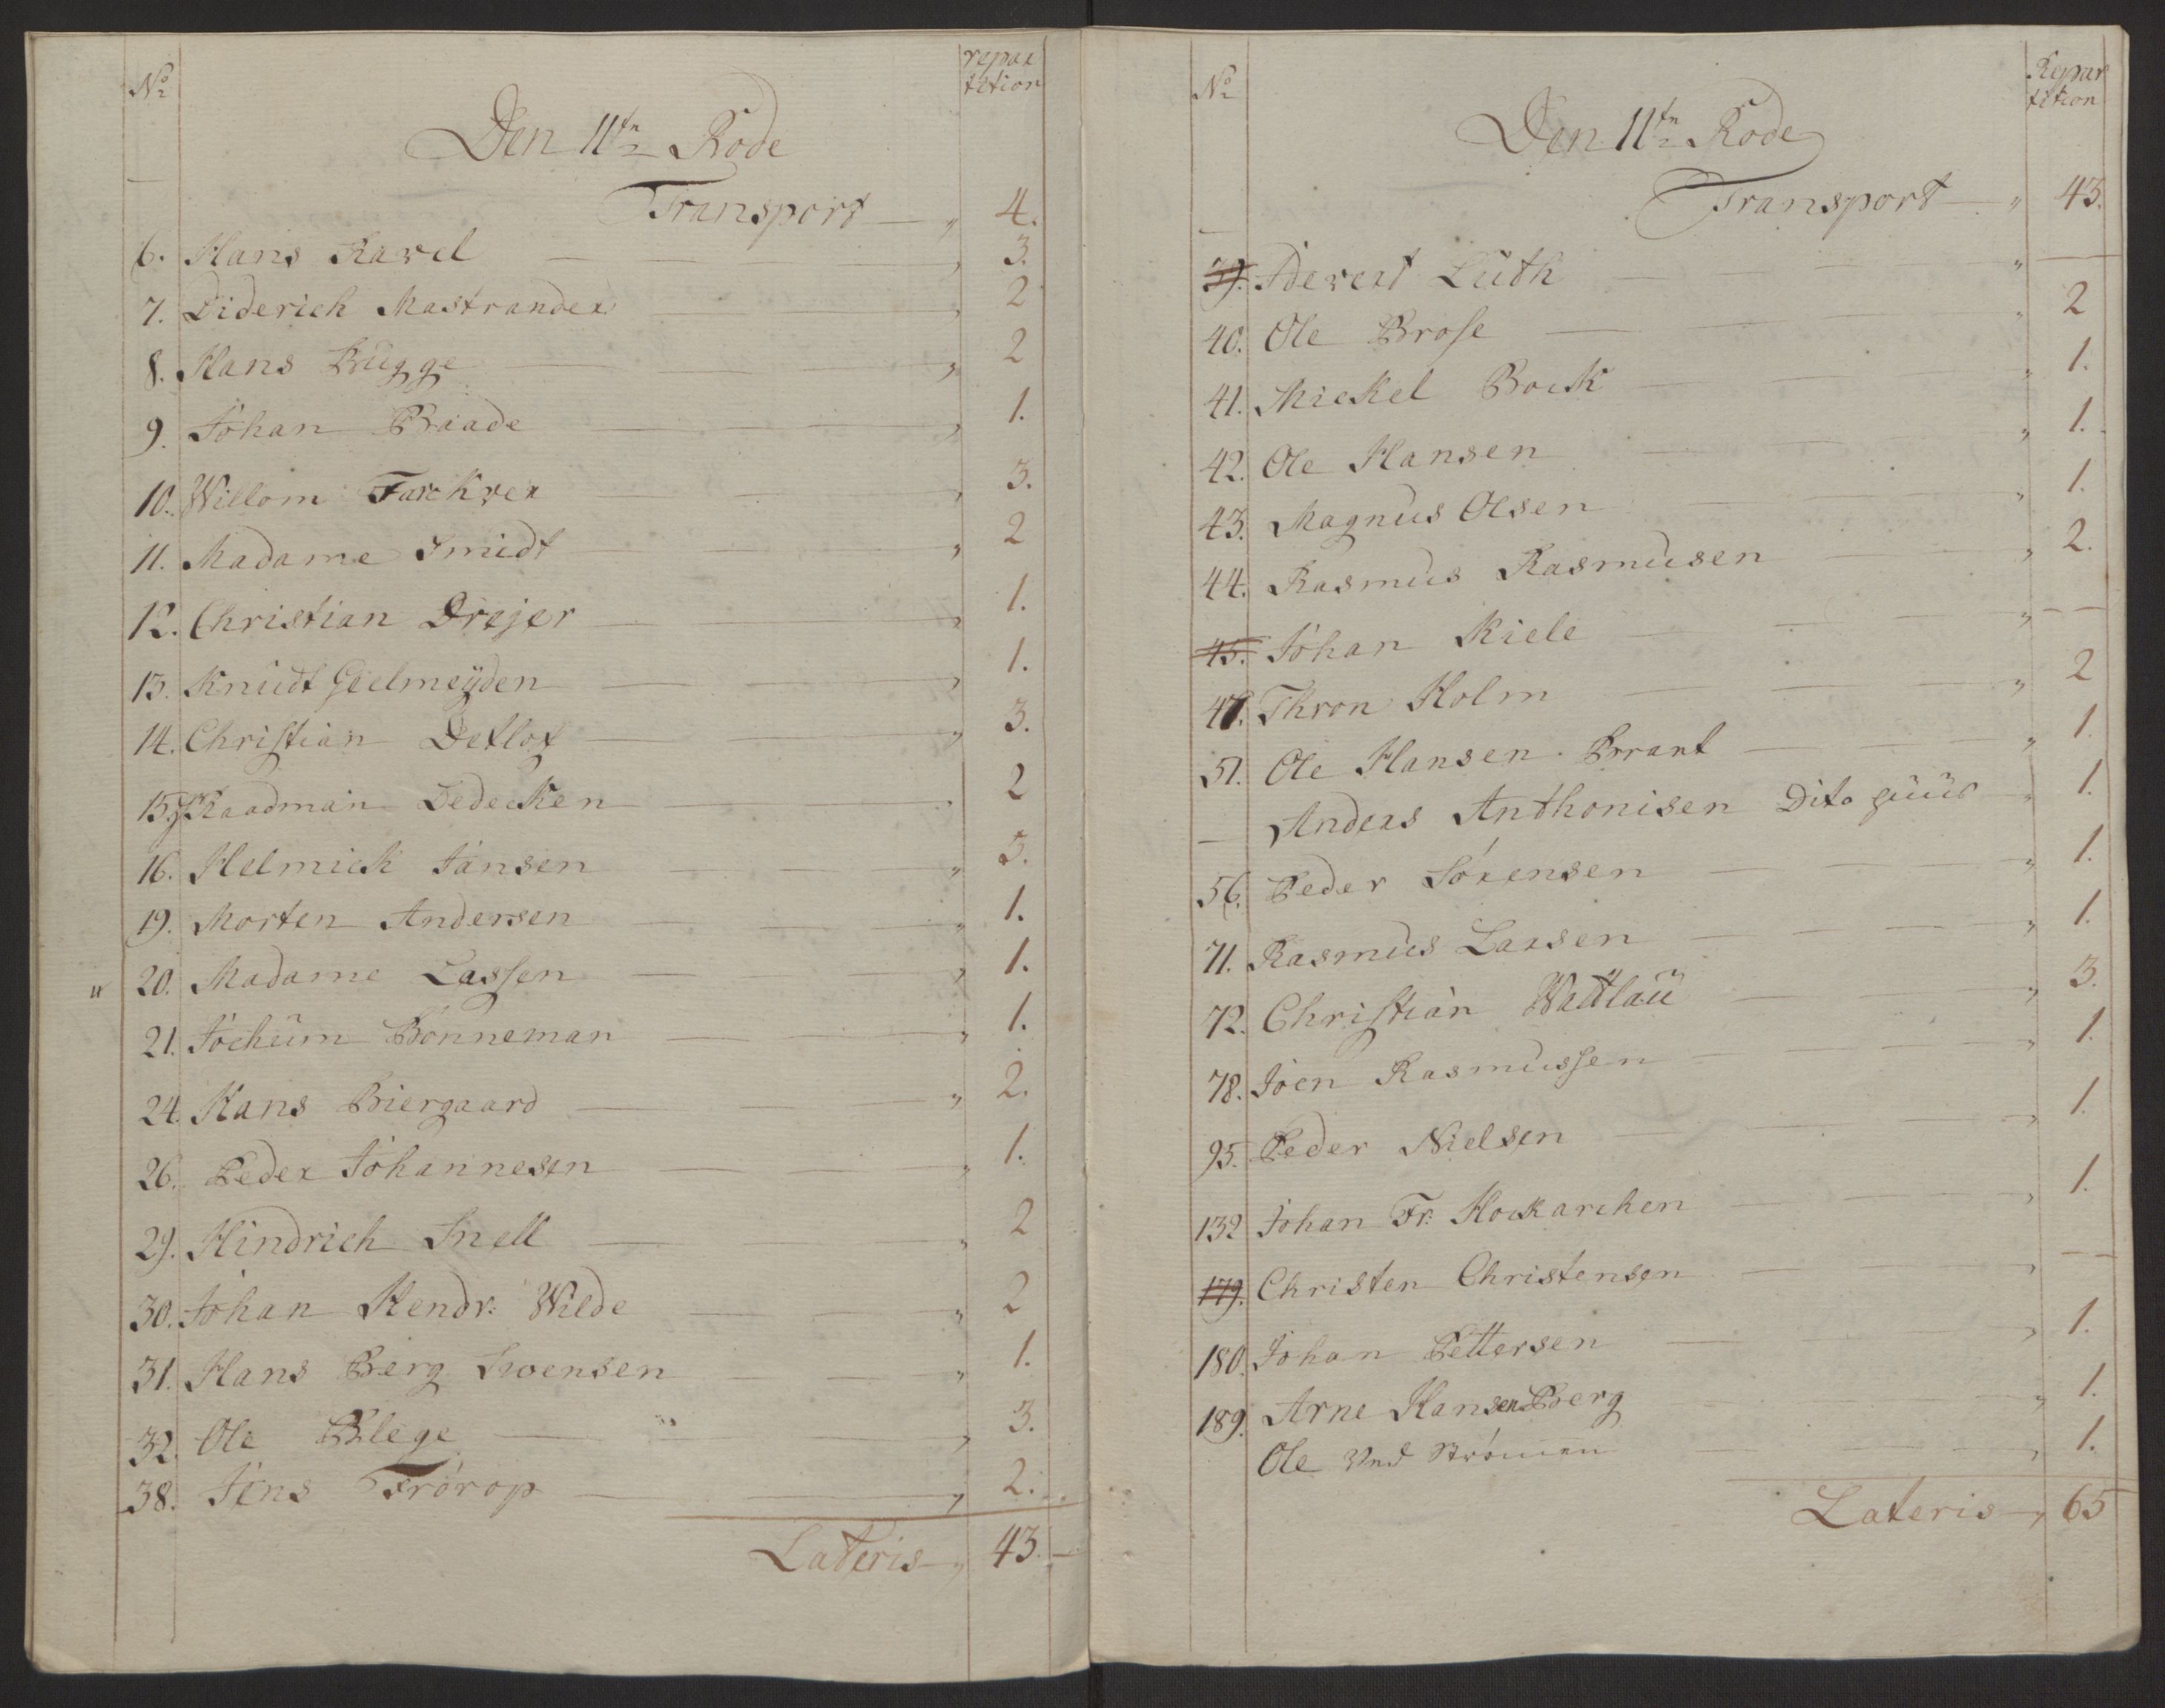 No repar
tition
Den 11tn Rode
Transport — " 4.
6. Hans Ravel " 3.
7. Diderich Mastrander " 2
8. Hans Bugge " 2
9. Johan Braade " 1.
10. Willom Farckver " 3.
11. Madame Smidt " 2
12. Christian Drejer " 1.
13. Knudt Gielmeÿden " 1.
14. Christian Detlof " 3.
15. Raadman Dedecken " 2
16. Helmick Jansen " 3.
19. Morten Andersen " 1.
" 20. Madame Lassen " 1.
21. Jochum Bonneman " 1.
24. Hans Biergaard " 2.
26. Peder Johannesen " 1.
29. Hindrich Snell " 2
30. Johan Hendr: Wilde " 2
31. Hans Berg Swensen " 1.
32. Ole Blege " 3.
38. Jens Frörop " 2.
Lateris " 43.
No Repar
tition
Den 11tn Rode
Transport — " 43.
39. Everst Luth " —
40. Ole Brose " 2
41. Mickel Bock " 1.
42. Ole Hansen " 1.
43. Magnus Olsen " 1.
44. Rasmus Rasmusen " 2.
45. Johan Kiele " — —
47. Thron Holm " 2
51. Ole Hansen Brant " 1.
— Anders Anthonisen Dito " 1.
56. Peder Sörensen " 1.
71. Rasmus Larsen " 1.
72. Christian Wattlau " 3.
78. Joen Rasmussen " 1.
95. Peder Nielsen " 1.
132 Johan Fr: Hockarchen " 1.
179. Christen Christensen " — —
180. Johan Pettersen " 1.
189. Arne Hansen Berg " 1.
Ole Ved Strömen " 1.
Lateris " 65